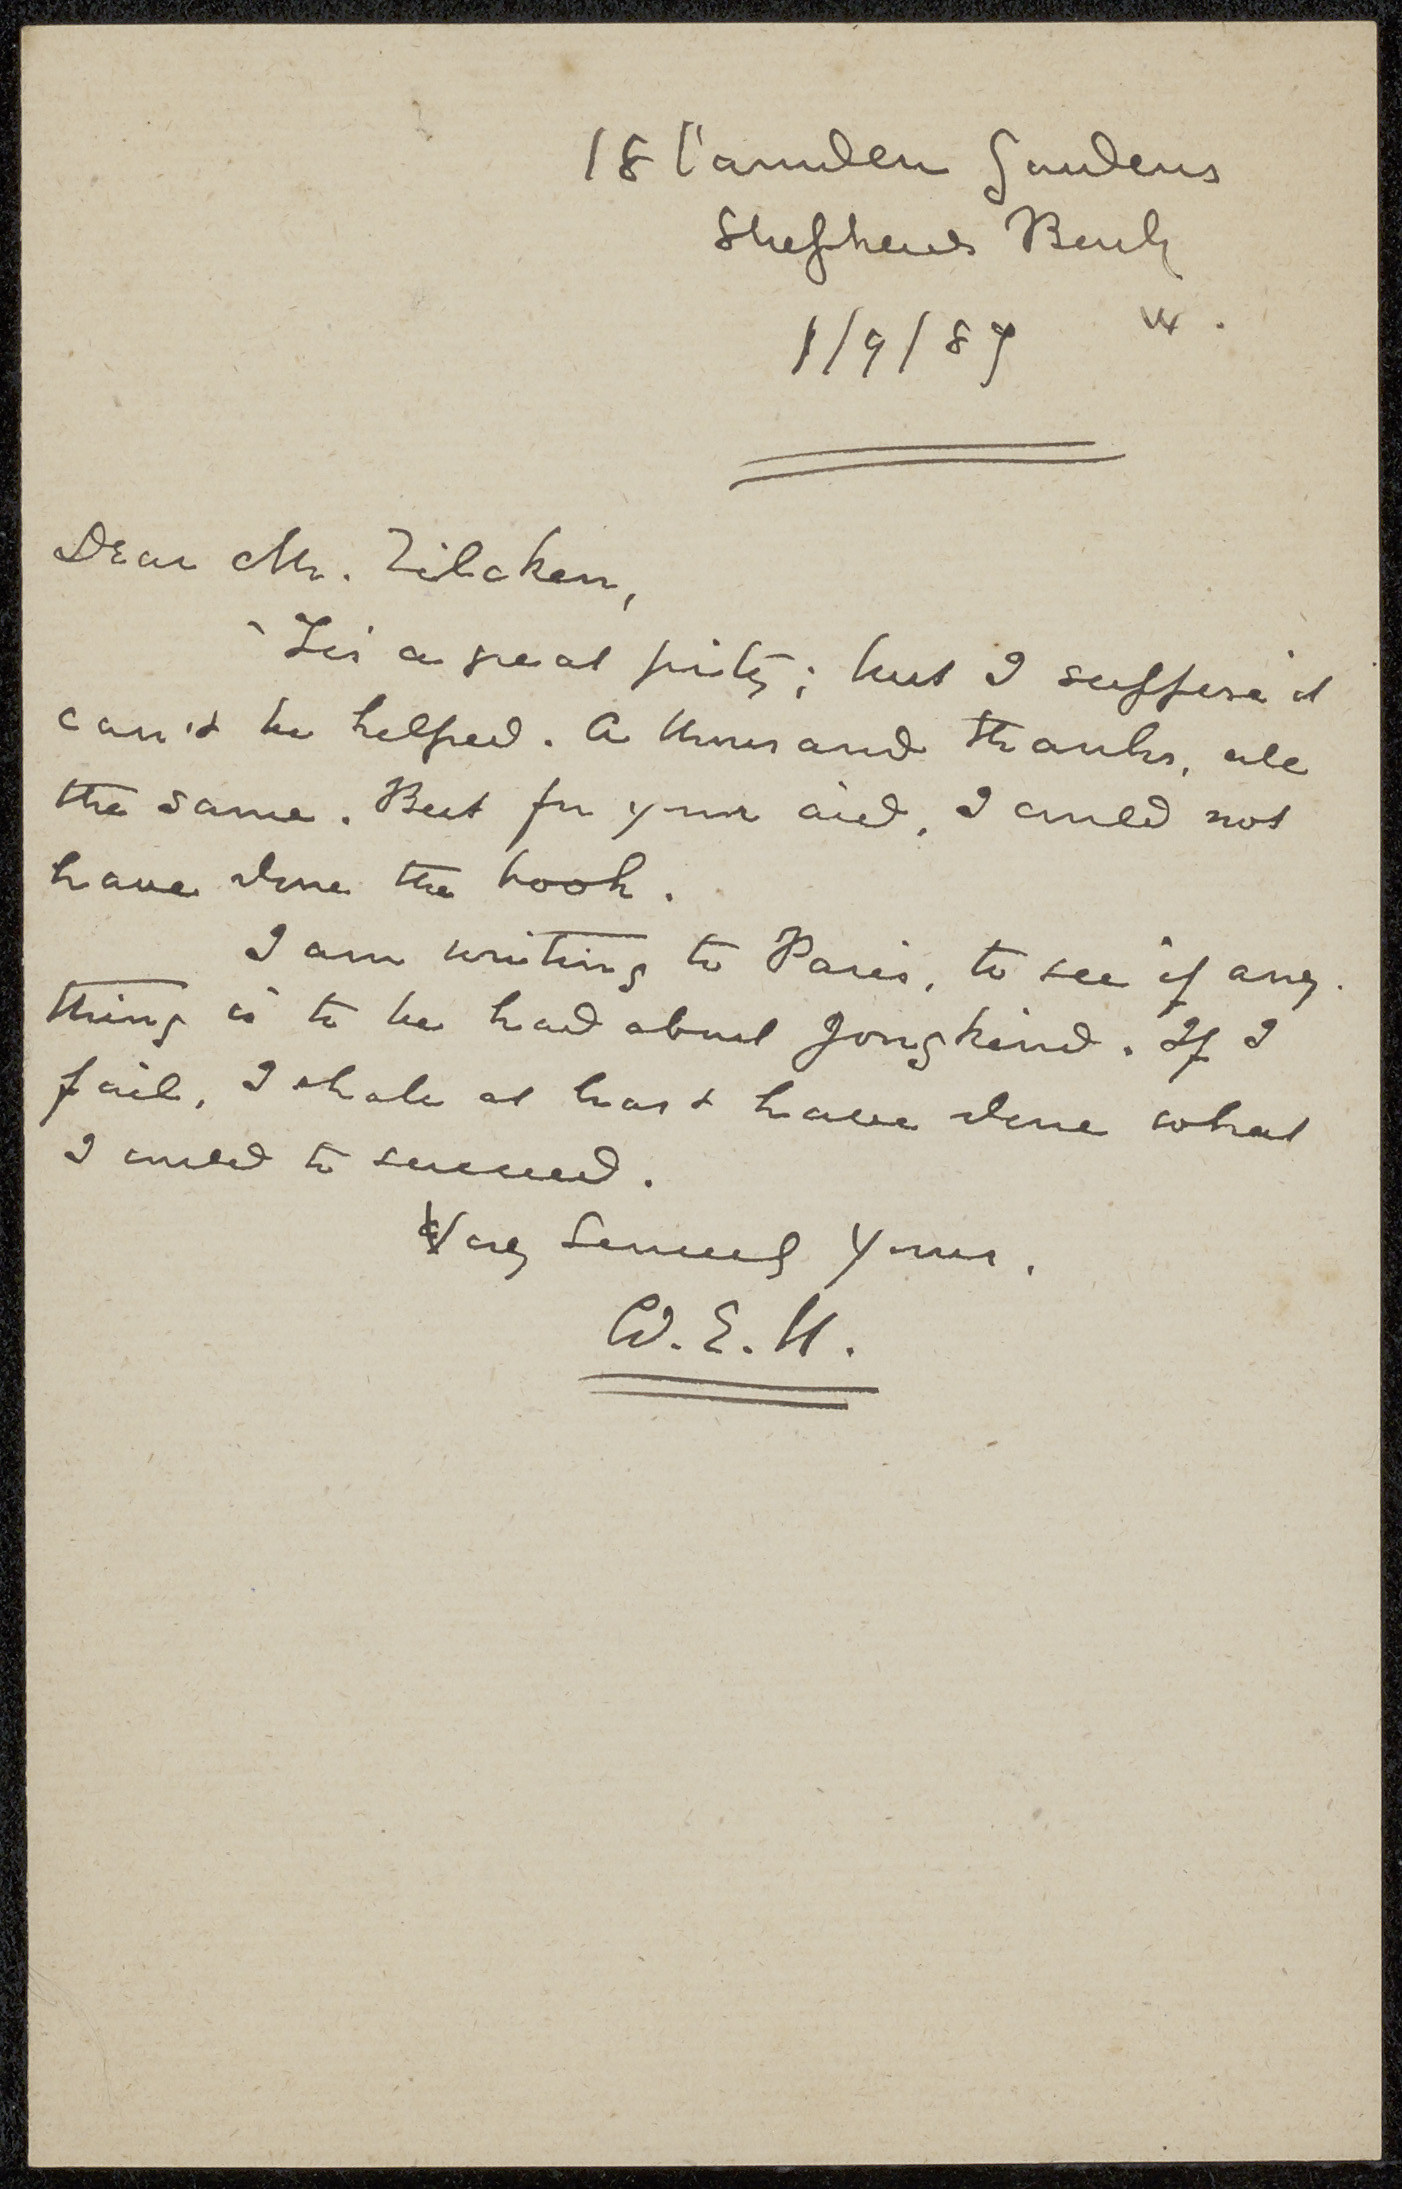 18 Camden Gardens
Shepherds Bush
W.
1/9/87
Dear Mr. Zilcken,
'Tis a great pity; but I suppose it
can't be helped. A thousand thanks, all
the same. But for your aid, I could not
have done the book.
I am writing to Paris, to see if any-
thing is to be had about Jongkind. If I
fail, I shall at least have done what
I could to succeed.
Very Sincerely Yours,
W.E.H.